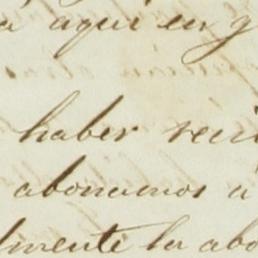 a aqui en g
haber reci
abonemos á
lmente la abo